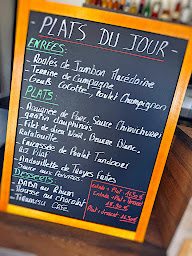 - PLATS DU JOUR -
ENTRÉES:
- Roulés de Jambon Macédoine
- Terrine de Campagne
- Oeufs Cocotte, Poulet Champignon
PLATS:
- Araignée de Porc, Sauce Chimichurri
gratin dauphinois
- Filet de dieu Noël, Beurre Blanc,
Ratatouille
- Fricassée de Poulet Tandoori
Riz Pilaf
- Andouillette de Troyes frites
Sauce aux Poivrons
DESSERTS
- BABA au Rhum
- Mousse au chocolat
- Tiramisu Café